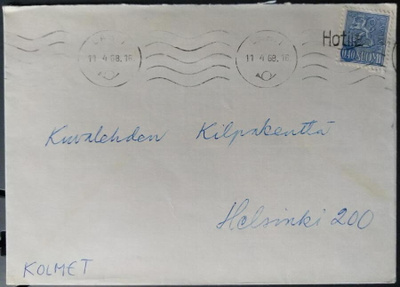 11.4.68.16
11.4.68.16
0,40 SUOMI
Kuvalehden Kilpakenttä
Helsinki 200
KOLMET